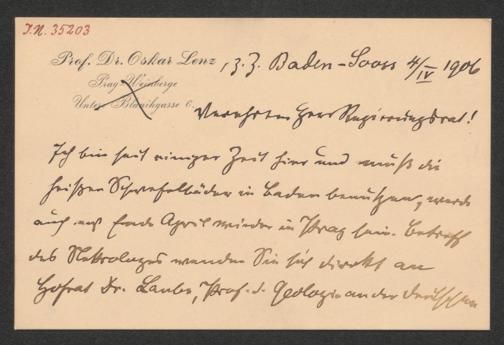 J.N. 35203
Prof. Dr. Oskar Lenz, z. Z. Baden-Sooss 4/IV 1906
Prag-Weinberge
Untere Blanikgasse 6.
Verehrter Herr Regierungsrat!
Ich bin seit einiger Zeit hier und muß die
heißen Schwefelbäder in Baden benutzen, werde
auch erst Ende April wieder in Prag sein. Betreff
des Nekrologes wenden Sie sich direkt an
Hofrat Dr. Laube, Prof. d. Geologie an der deutschen